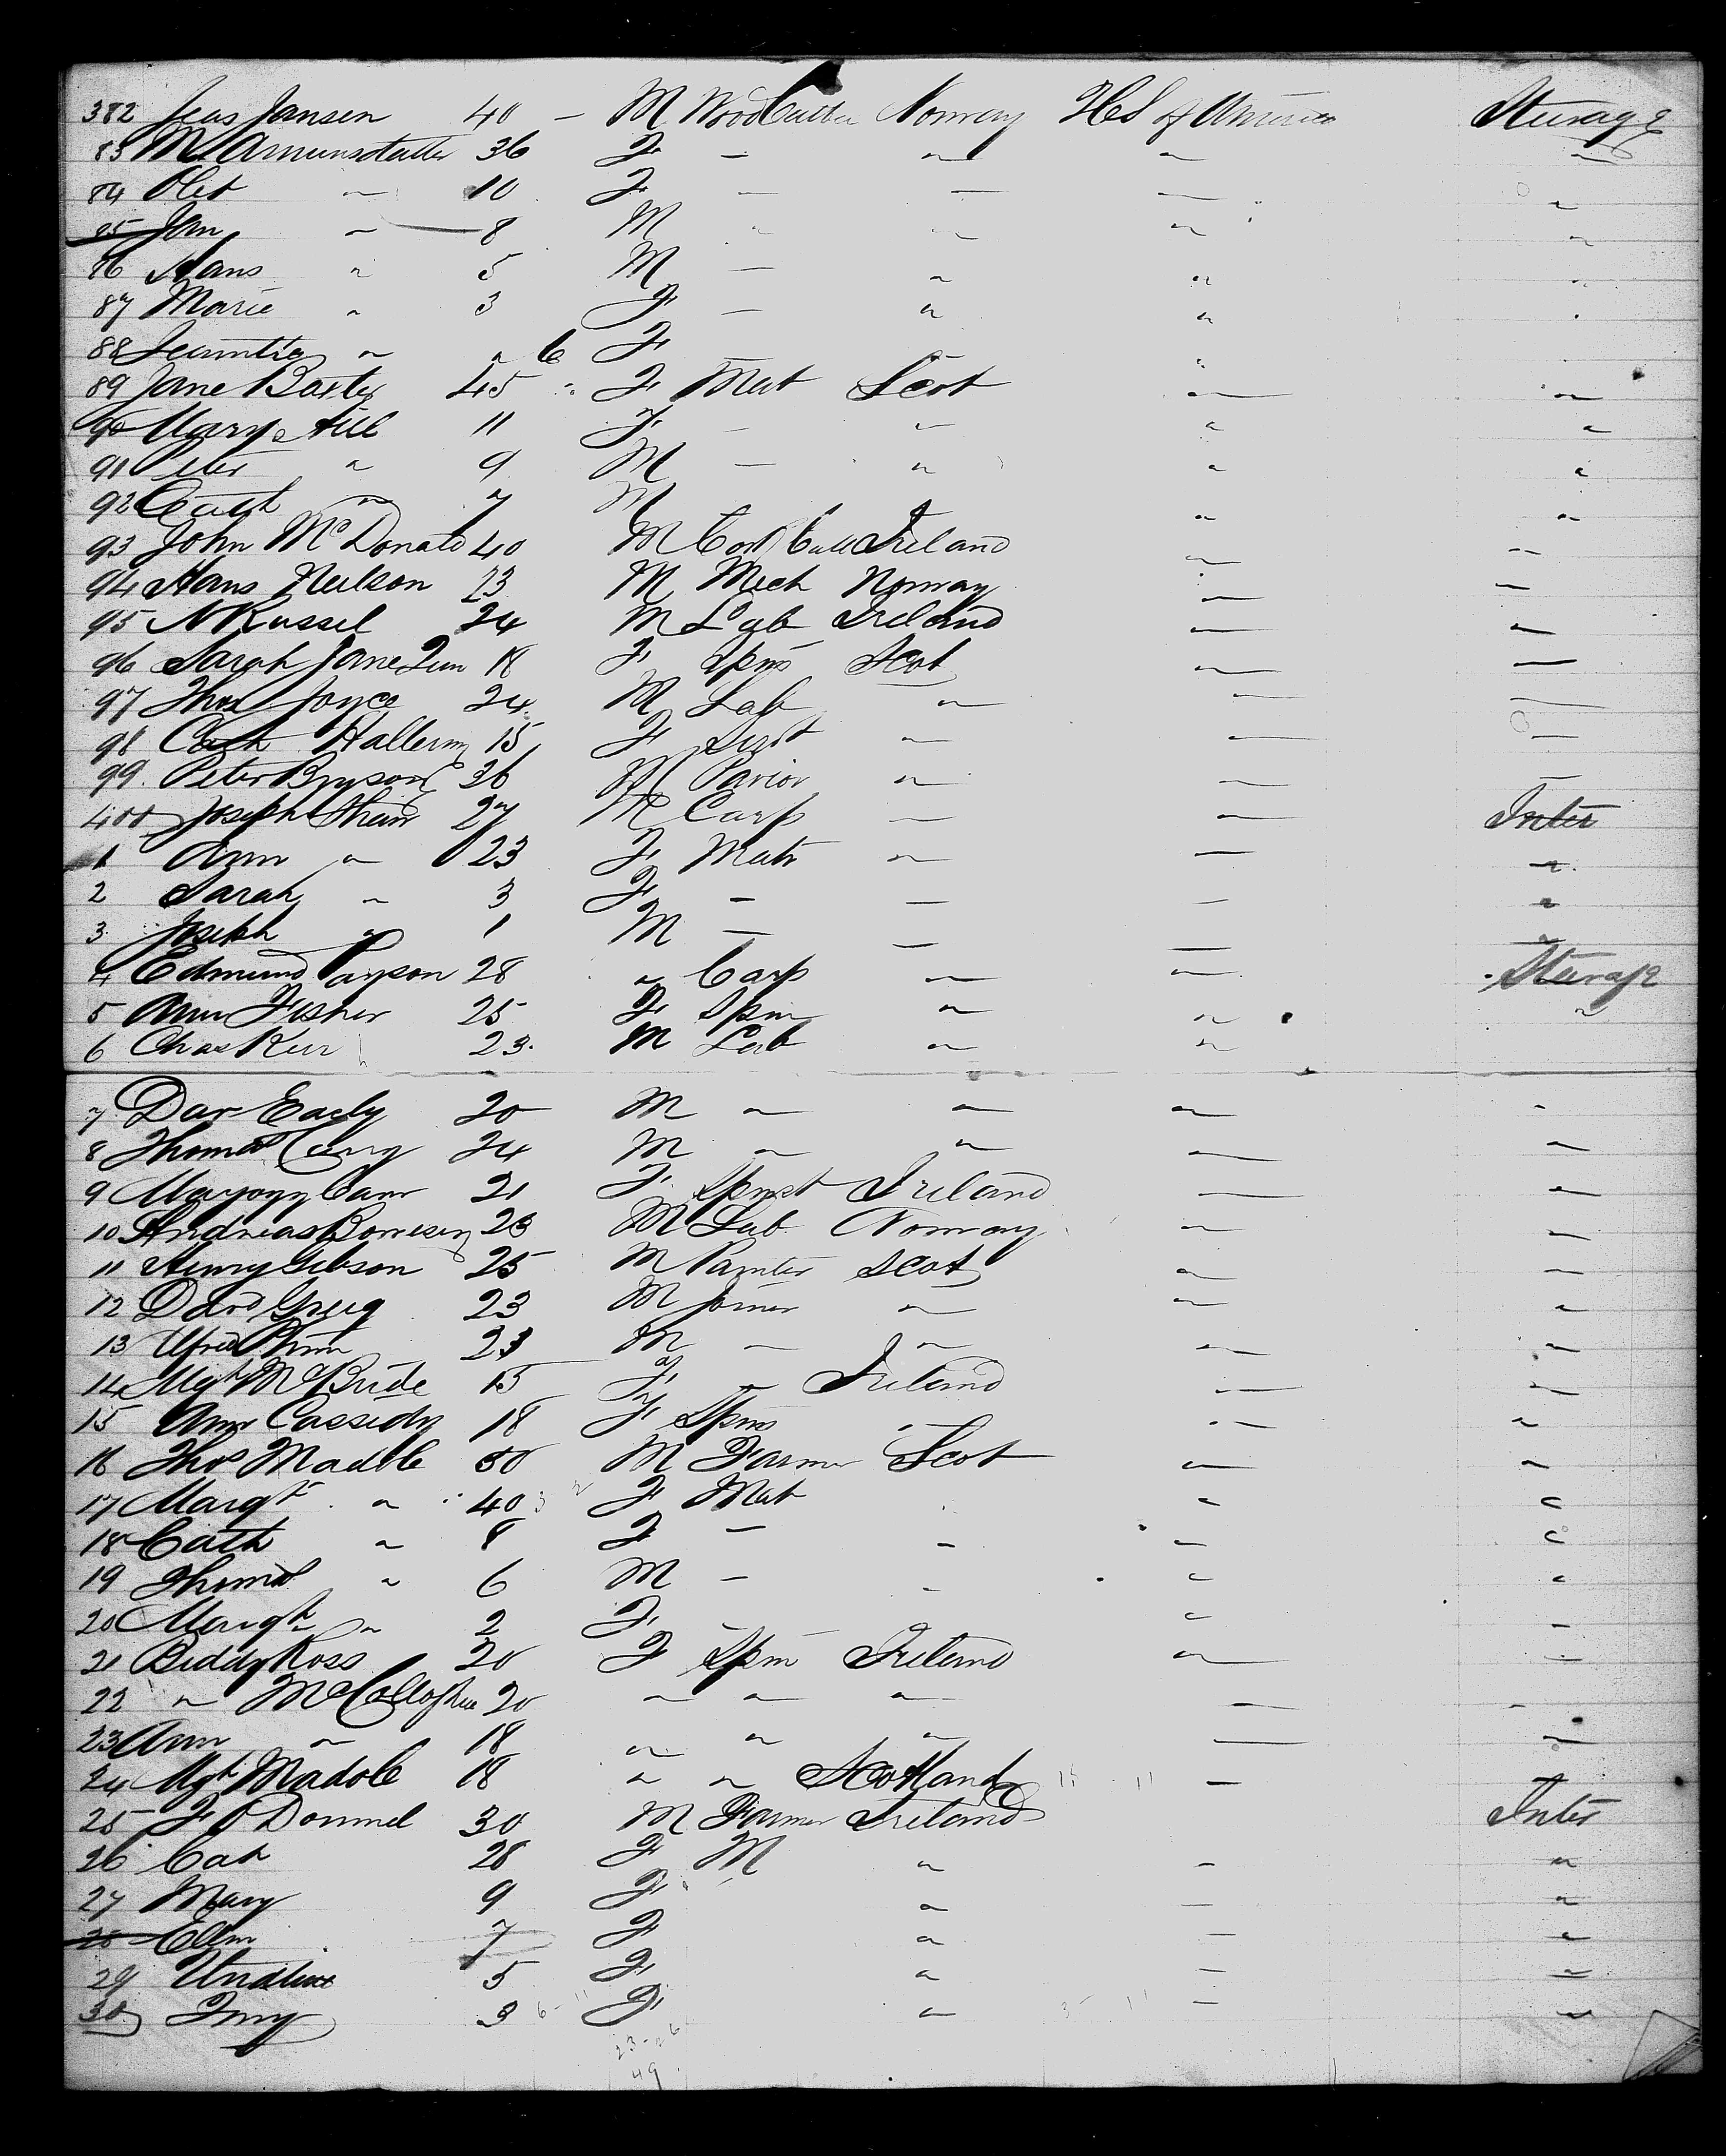 382 Jeas Jansen 40 — M Wood Cutter Norway U S of America Steerage
83 M 36 F — " " "
84 Olet " 10 F — — — "
85 Jan " 8 M " " " "
86 Hans " 5 M — " " "
87 Marie " 3 F — " " "
88 " " 6 F
89 Jane Baxter 45 " F Mat Scot " "
90 Mary Hill 11 F — " " "
91 Peter " 9 M — " " "
92 " 7 M " "
93 John McDonald 40 M Ireland " "
94 Hans Neilson 23 M Mech Norway " "
95 N Russel 24 M Lab Ireland " "
96 Sarah Jane 18 F Spns Scot " —
97 Thos Joyce 24 M Lab " " —
98 Cath 15 F Servt " " —
99 Peter Bryson 36 M Pavior " "
400 Joseph Shaw 27 M Carp — " Inter
1 Ann " 23 F Matr " — "
2 Sarah " 3 F — — — "
3 Joseph " 1 M — — — "
4 Edmund Payson 28 " Carp " " Steerage
5 Ann Fisher 25 F Spin " " "
6 Chas Kerr 23 M Lab " "
7 Dav Early 20 M " " " "
8 Thomas 24 M " " " "
9 21 F Spnst Ireland " "
10 Andreas 23 M Lab Norway " "
11 Henry Gibson 25 M Painter Scot " "
12 David Greig 23 M Joiner " " "
13 Alfred 23 M — " " "
14 Mgt McBride 15 F " Ireland " "
15 Ann Cassidy 18 F Spns " " "
16 Thos Madole 50 M Farmer Scot " "
17 Margt " 40 F Mat " "
18 Cath " 8 F — " " "
19 Thomas " 6 M — " " "
20 Margt " 2 F " "
21 Biddy Ross 20 F Spin Ireland " "
22 " 20 " " " " "
23 Ann " 18 " " " " "
24 Mgt Madole 18 " " Scotland —
25 F O Donnel 30 M Farmer Ireland Inter
26 Cat 28 F M " — "
27 Mary 9 F " — "
28 Ellen 7 F " — "
29 5 F " — "
30 3 F " — "
23-26
49